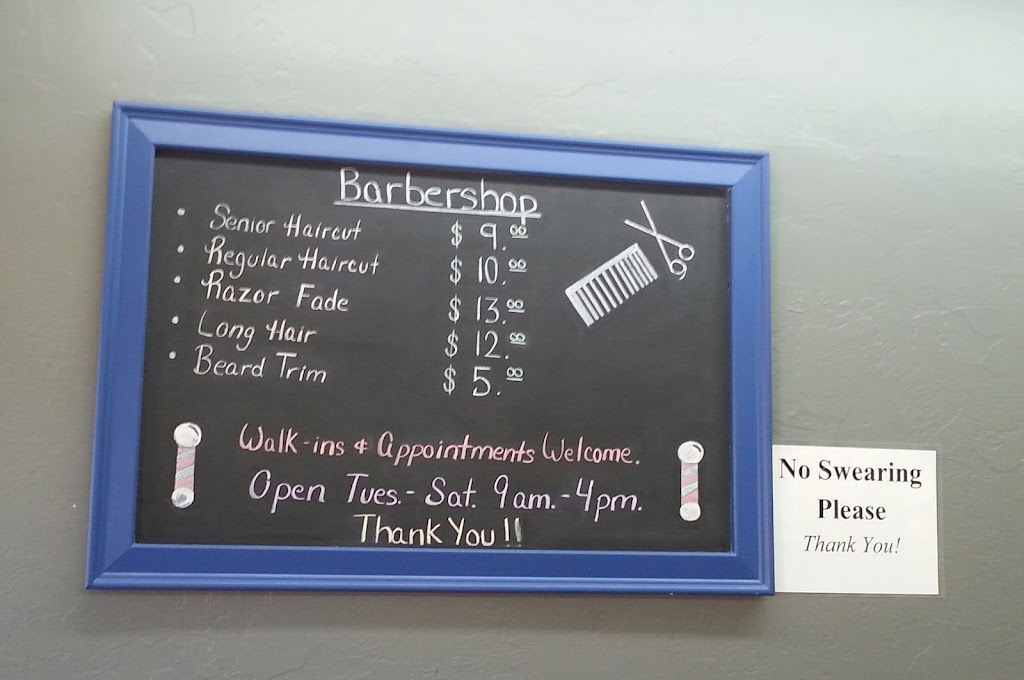 Barbershop
• Senior Haircut $ 9.00
• Regular Haircut $ 10.00
• Razor Fade $ 13.00
• Long Hair $ 12.00
• Beard Trim $ 5.00
Walk-ins & Appointments Welcome.
Open Tues.- Sat. 9am.-4pm.
Thank You!!
No Swearing
Please
Thank You!